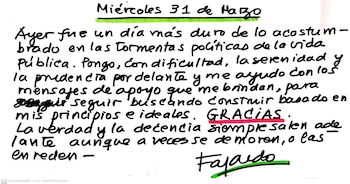 Miércoles 31 de Marzo
Ayer fue un día más duro de lo acostum-
brado en las tormentas políticas de la vida
pública. Pongo, con dificultad, la serenidad y
la prudencia por delante y me ayudo con los
mensajes de apoyo que me brindan, para
seguir buscando construir basado en
mis principios e ideales. GRACIAS.
La verdad y la decencia siempre salen ade
lante aunque a veces se demoren, o las
enreden —
Fajardo